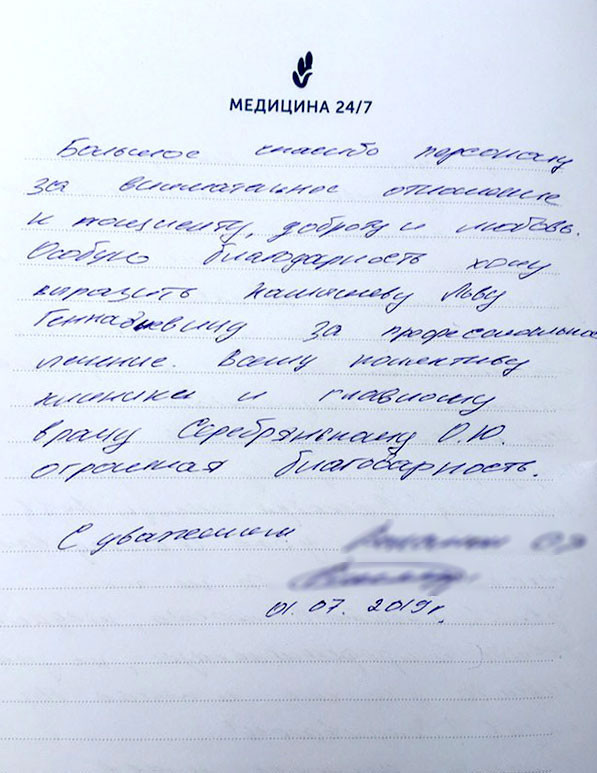 МЕДИЦИНА 24/7
Большое спасибо персоналу
за внимательное отношение
к пациенту, доброту и любовь.
Особую благодарность хочу
выразить Льву
Геннадьевичу за профессиональное
лечение. Всему колективу
клиники и главному
врачу Серебрянскому О.Ю.
огромная благодарность.
С уважением
01.07.2019г.